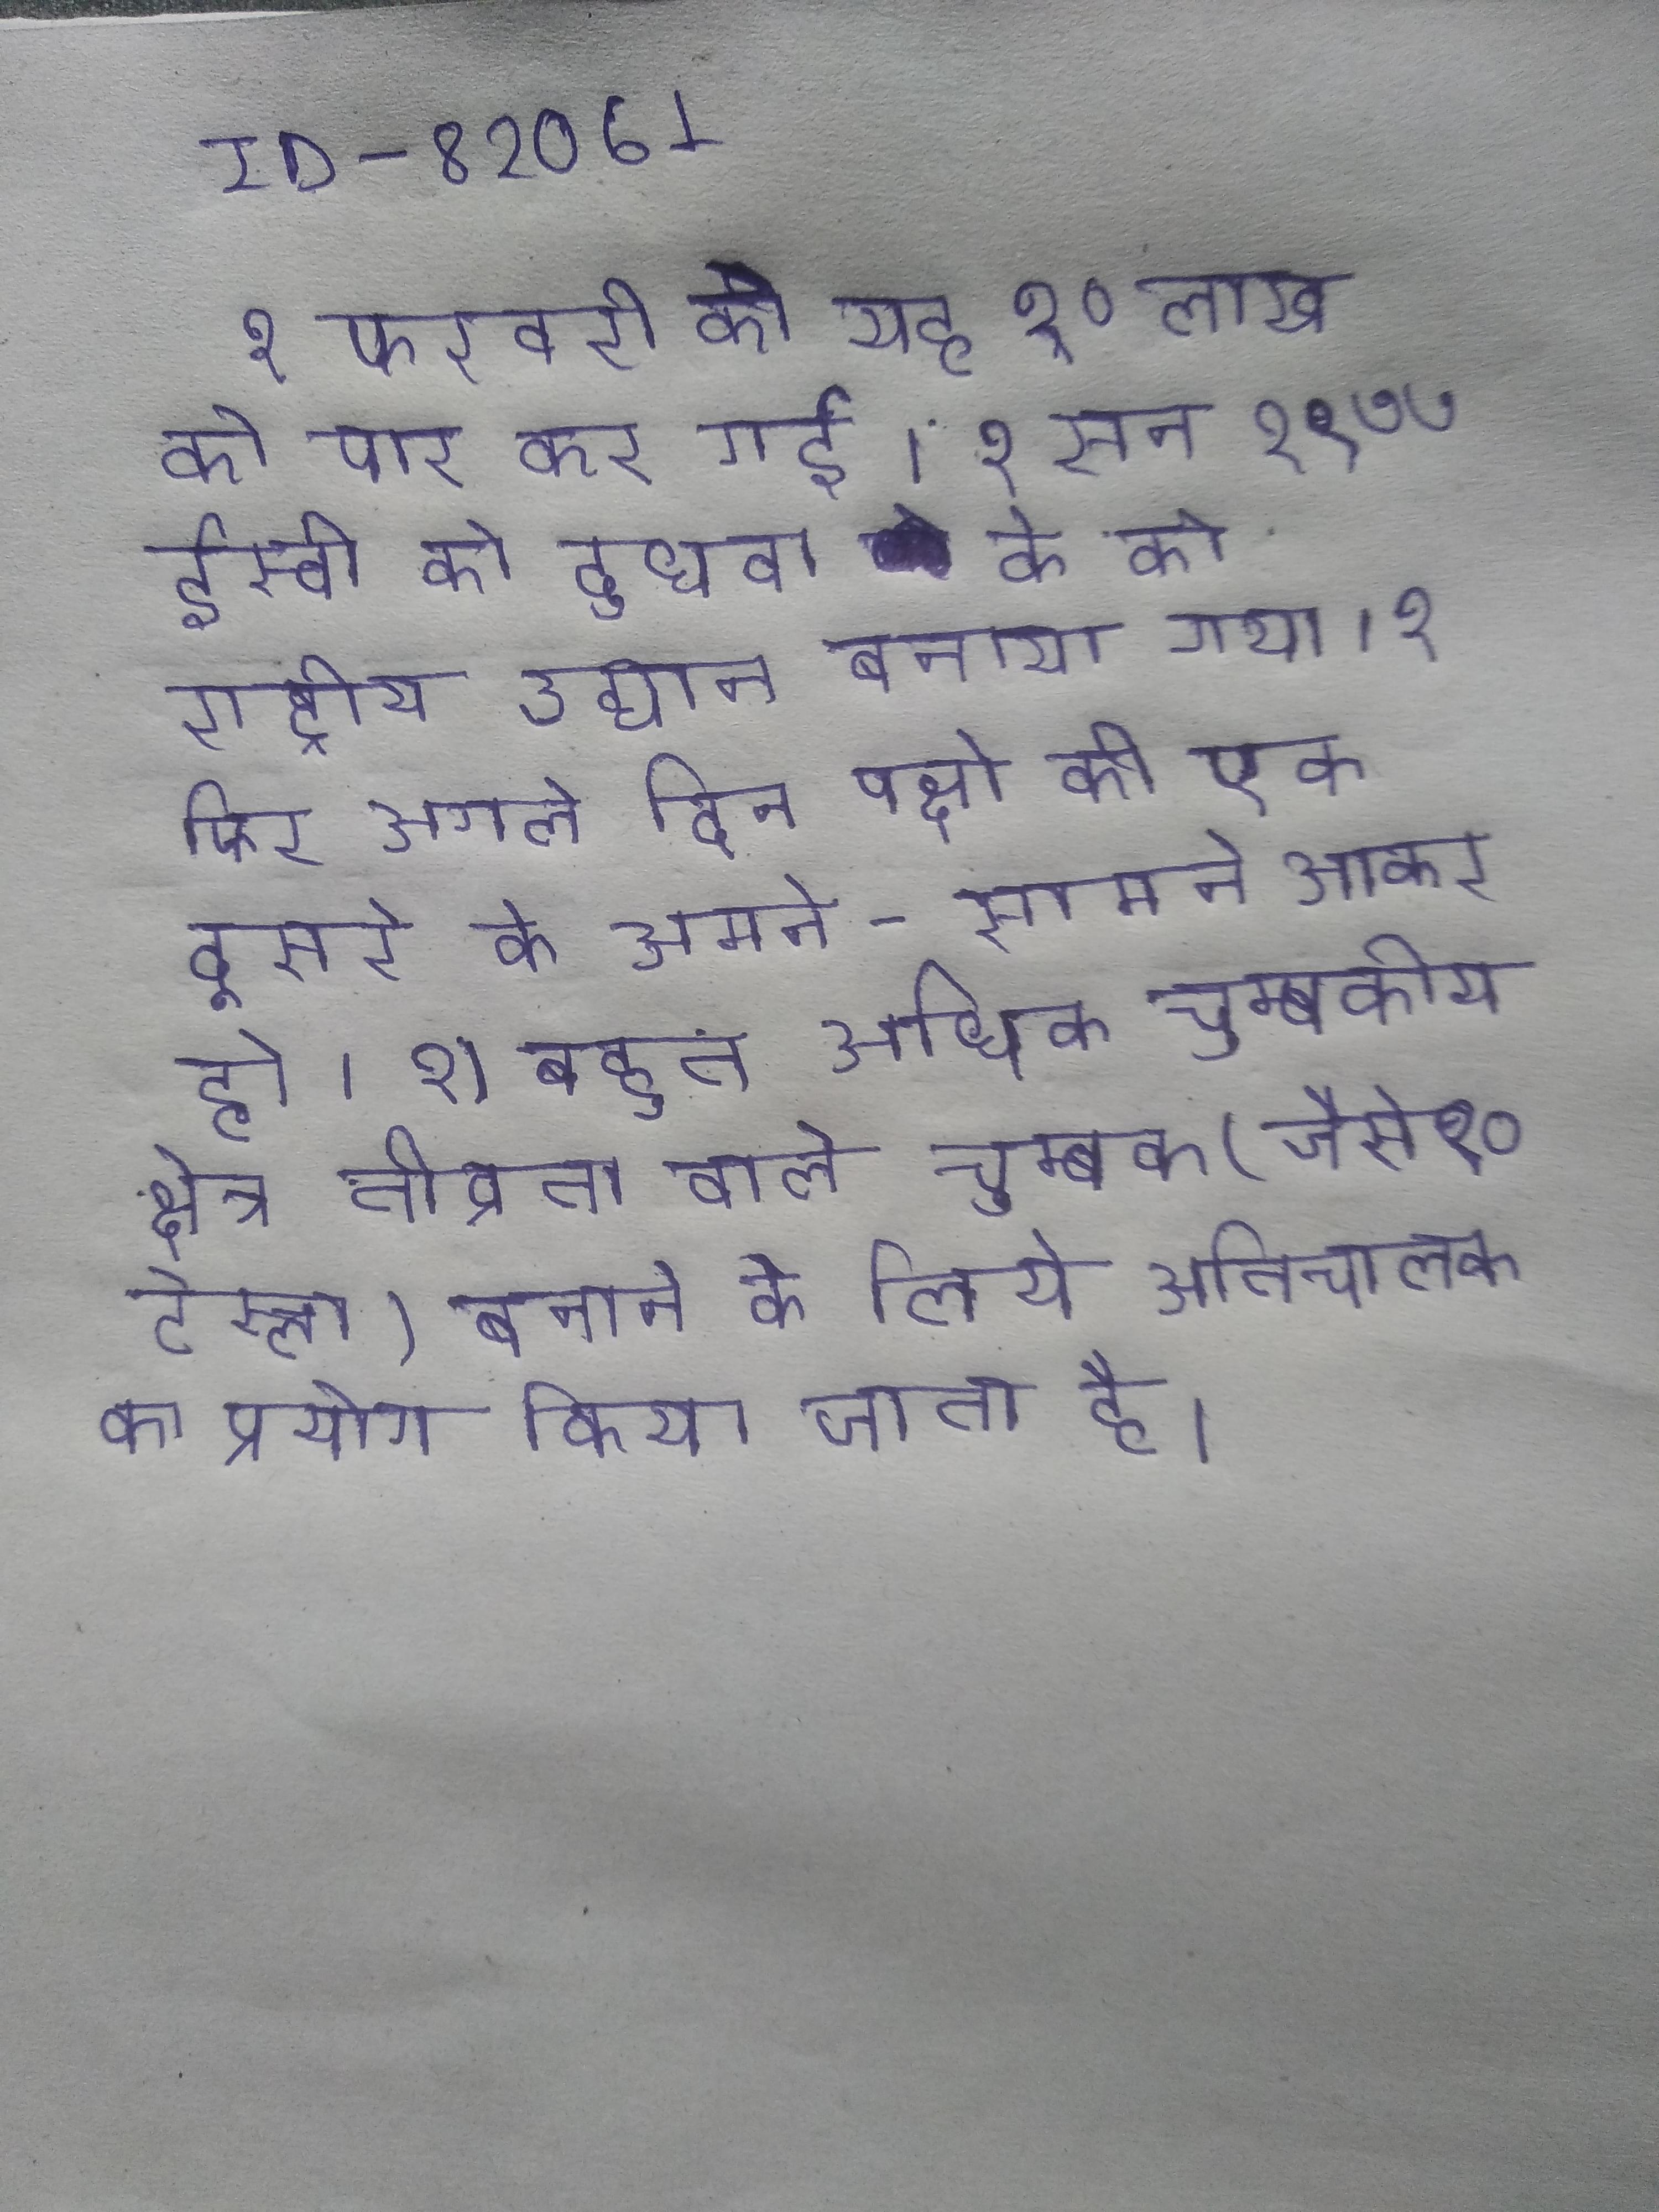 ID-82061
१ फरवरी को यह १० लाख
को पार कर गई । १ सन १९७७
ईस्वी को दुधवा के को
राष्ट्रीय उद्यान बनाया गया । १
फिर अगले दिन पक्षो की एक
दूसरे के अमने - सामने आकर
हो । १) बहुत अधिक चुम्बकीय
क्षेत्र तीव्रता वाले चुम्बक (जैसे १०
टेस्ला) बनाने के लिये अतिचालक
का प्रयोग किया जाता है ।